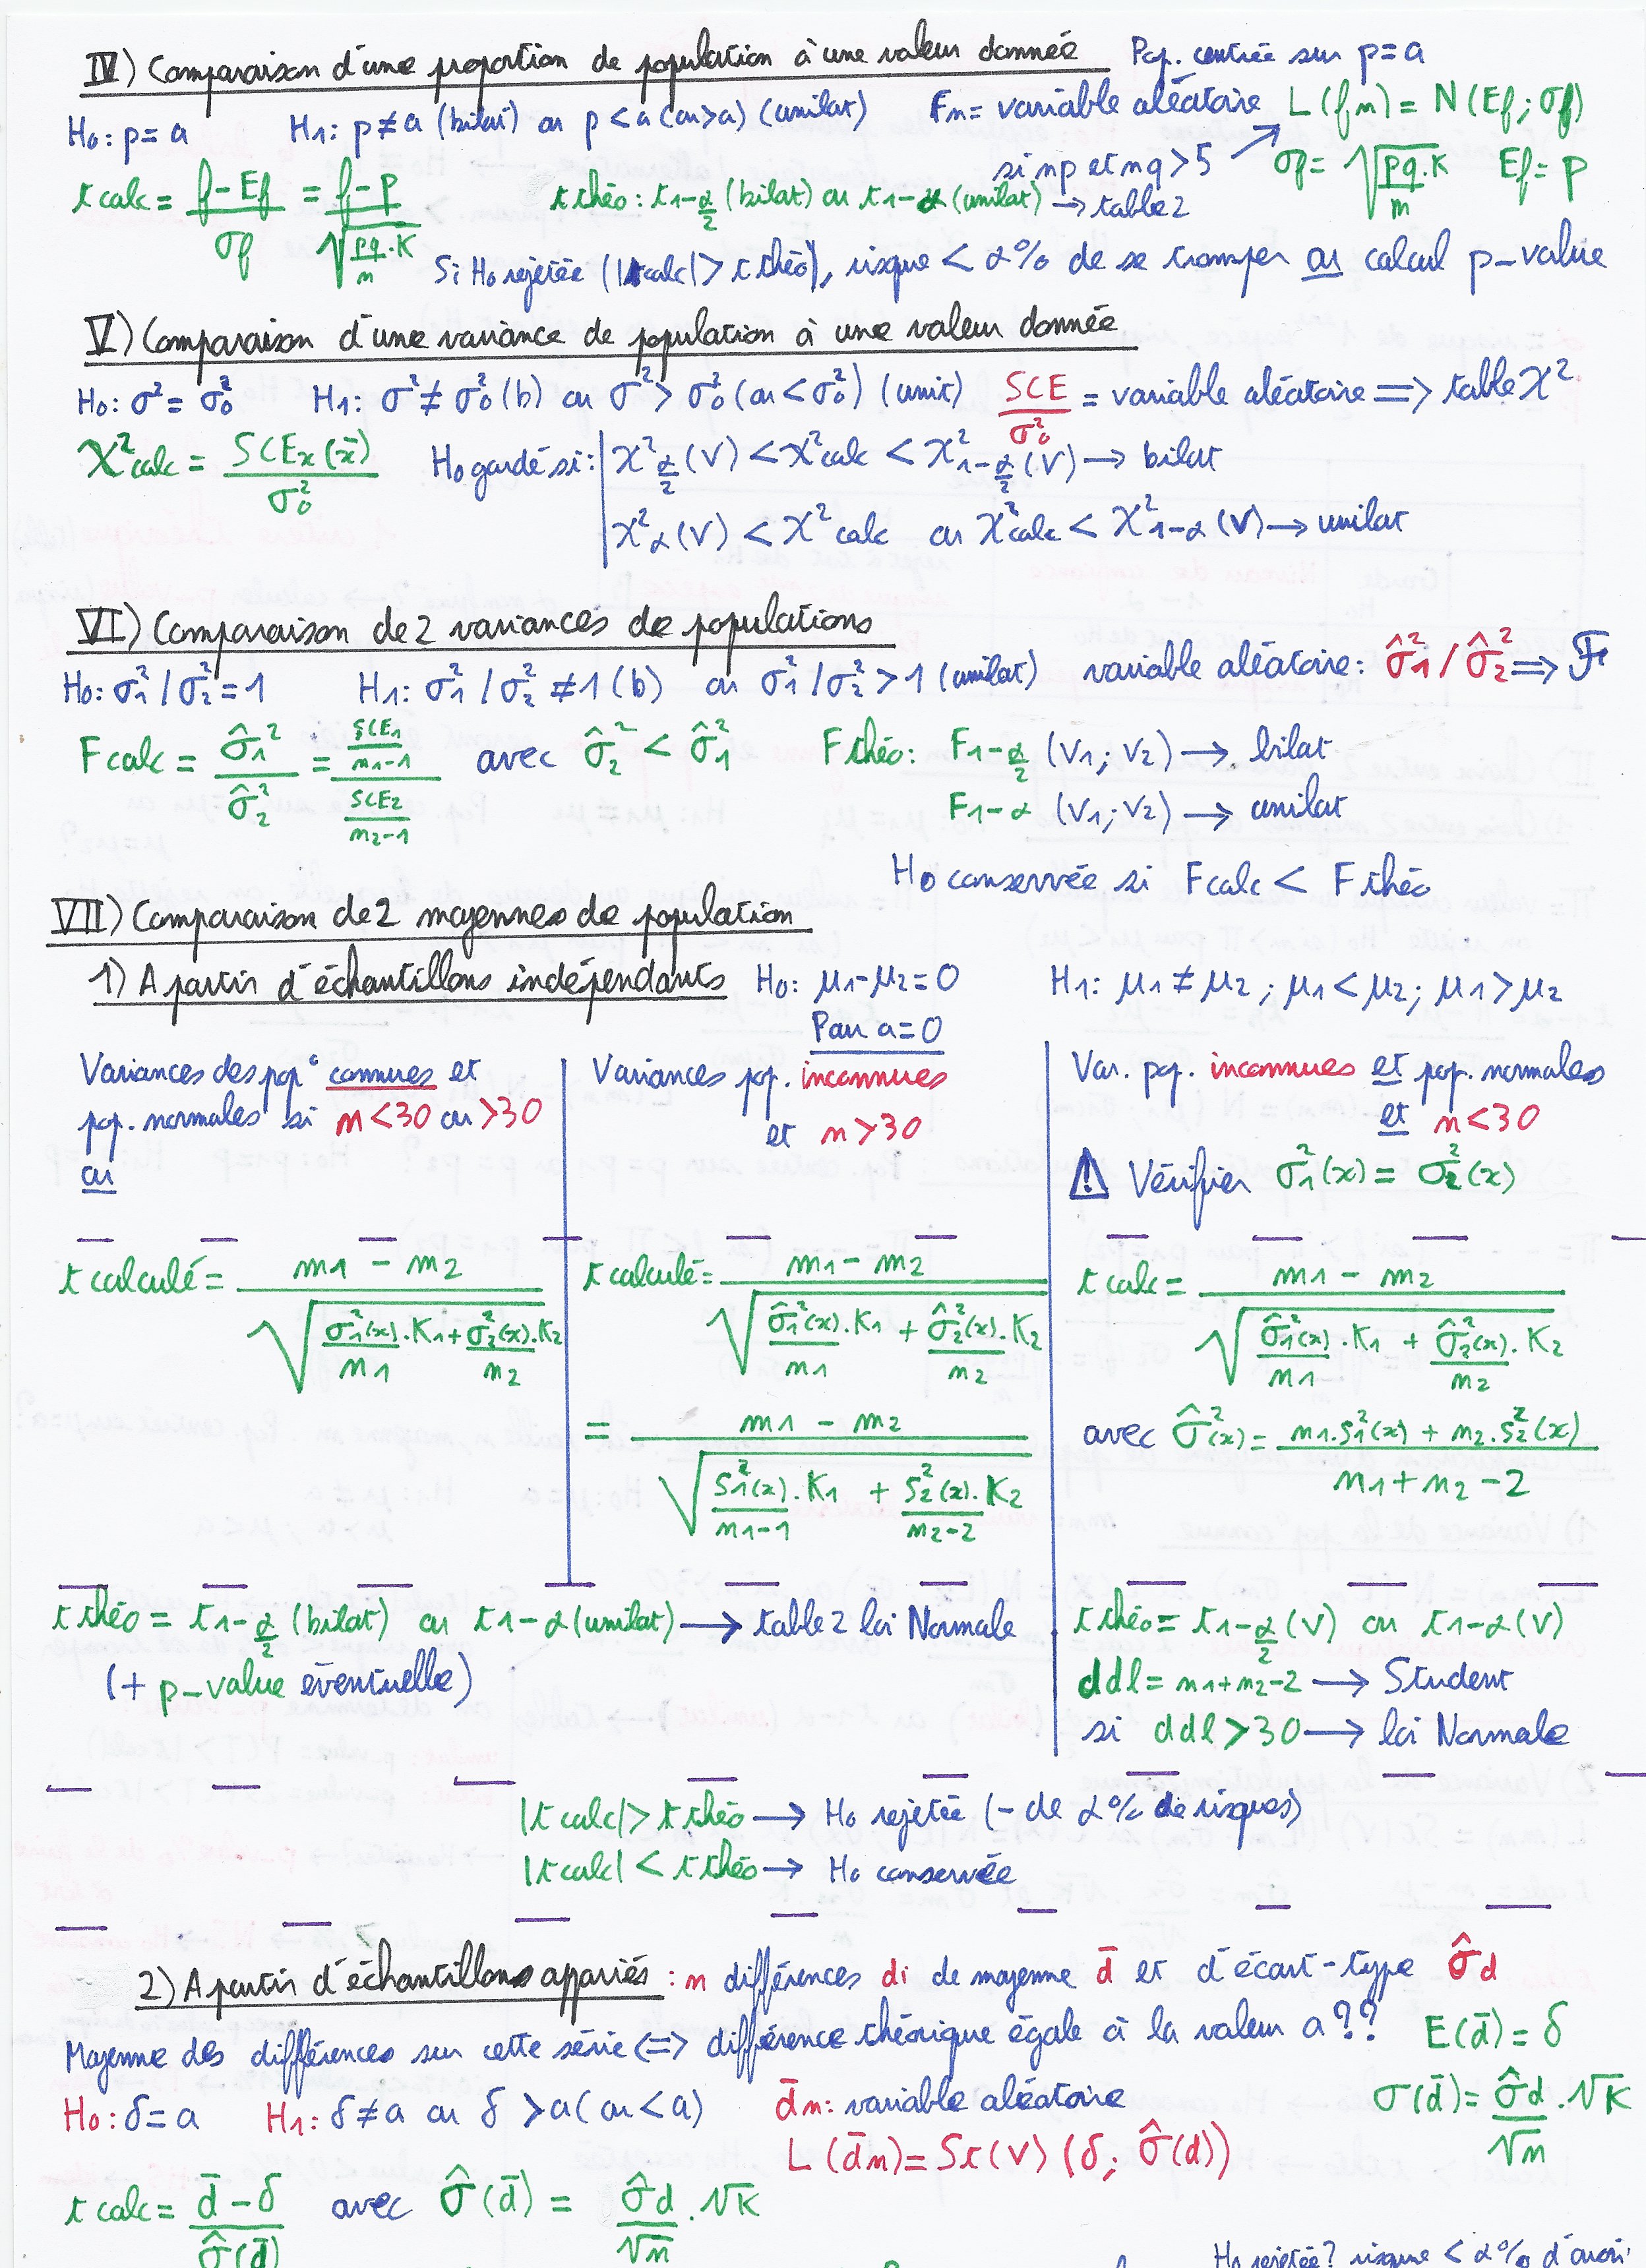 IV) Comparaison d'une proportion de population à une valeur donnée Pop. centrée sur p=a
H0: p=a H1: p≠a (bilat) ou p<a (ou>a) (unilat) Fn= variable aléatoire L(fn) = N(Ef; σf)
si np et nq >5 σf= √(pq/n . K) Ef= p
t calc = (f-Ef)/σf = (f-p)/√(pq/n . K) t théo: t1-α/2 (bilat) ou t1-α (unilat) → table 2
Si H0 rejetée (|tcalc| > t théo), risque < α% de se tromper ou calcul p-value
V) Comparaison d'une variance de population à une valeur donnée
H0: σ² = σ0² H1: σ² ≠ σ0² (b) ou σ² > σ0² (ou < σ0²) (unit) SCE/σ0² = variable aléatoire => table χ²
χ²calc = SCEx(x̄)/σ0² H0 gardé si: χ²α/2 (V) < χ²calc < χ²1-α/2 (V) → bilat
χ²α (V) < χ²calc ou χ²calc < χ²1-α (V) → unilat
VI) Comparaison de 2 variances de populations
H0: σ1²/σ2² = 1 H1: σ1²/σ2² ≠ 1 (b) ou σ1²/σ2² > 1 (unilat) variable aléatoire: σ̂1²/σ̂2² => F
F calc = σ̂1²/σ̂2² = (SCE1/(n1-1))/(SCE2/(n2-1)) avec σ̂2² < σ̂1² F théo: F1-α/2 (V1; V2) → bilat
F1-α (V1; V2) → unilat
H0 conservée si F calc < F théo
VII) Comparaison de 2 moyennes de population
1) A partir d'échantillons indépendants H0: μ1-μ2=0 H1: μ1≠μ2; μ1<μ2; μ1>μ2
Pour a=0
Variances des pop° connues et
pop. normales si n<30 ou >30
ou
Variances pop. inconnues
et n>30
Var. pop. inconnues et pop. normales
et n<30
⚠ Vérifier σ1²(x) = σ2²(x)
t calculé = (m1 - m2)/√(σ1²(x)/n1 . K1 + σ2²(x)/n2 . K2)
t calculé = (m1 - m2)/√(σ̂1²(x)/n1 . K1 + σ̂2²(x)/n2 . K2)
= (m1 - m2)/√(S1²(x)/(n1-1) . K1 + S2²(x)/(n2-2) . K2)
t calc = (m1 - m2)/√(σ̂1²(x)/n1 . K1 + σ̂2²(x)/n2 . K2)
avec σ̂²(x) = (n1.S1²(x) + n2.S2²(x))/(n1+n2-2)
t théo = t1-α/2 (bilat) ou t1-α (unilat) → table 2 loi Normale
(+ p-value éventuelle)
t théo = t1-α/2 (V) ou t1-α (V)
ddl = n1+n2-2 → Student
si ddl >30 → loi Normale
|t calc| > t théo → H0 rejetée (- de α% de risques)
|t calc| < t théo → H0 conservée
2) A partir d'échantillons appariés : n différences di de moyenne d̄ et d'écart-type σ̂d
Moyenne des différences sur cette série <=> différence théorique égale à la valeur a?? E(d̄) = δ
H0: δ=a H1: δ≠a ou δ>a (ou <a) d̄n: variable aléatoire σ(d̄) = σ̂d/√n . √K
L(d̄n) = St(V) (δ; σ̂(d))
t calc = (d̄-δ)/σ̂(d̄) avec σ̂(d̄) = σ̂d/√n . √K
H0 rejetée? risque < α% d'avoir